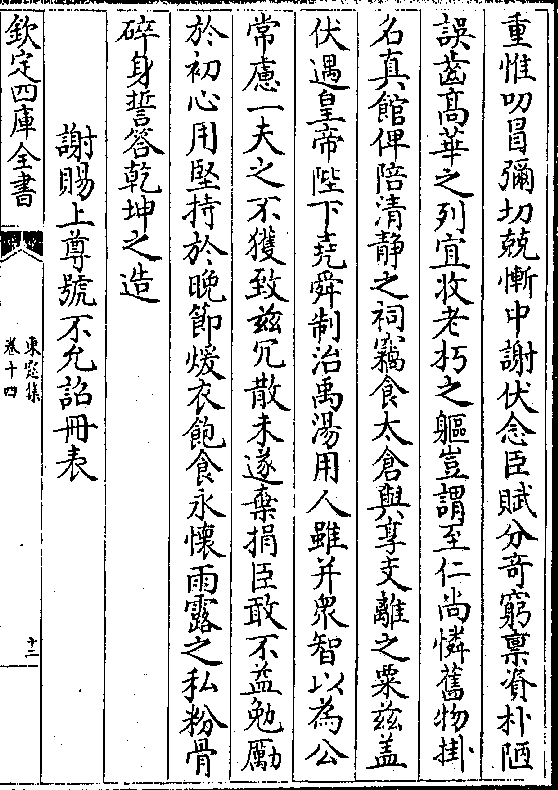 重惟叨冒彌切兢慚中謝伏念臣賦分奇窮禀資朴陋
誤齒髙華之列宜收老朽之軀豈謂至仁尚憐舊物掛
名真館俾陪清静之祠竊食太倉與享支離之粟兹盖
伏遇皇帝陛下堯舜制治禹湯用人雖并衆智以為公
常慮一夫之不獲致兹冗散未遂棄捐臣敢不益勉勵
於初心用堅持於晩節煖衣飽食永懷雨露之私粉骨
碎身誓答乾坤之造
謝賜上尊號不允詔冊表
欽定四庫全書
東窓集
卷十四
十二